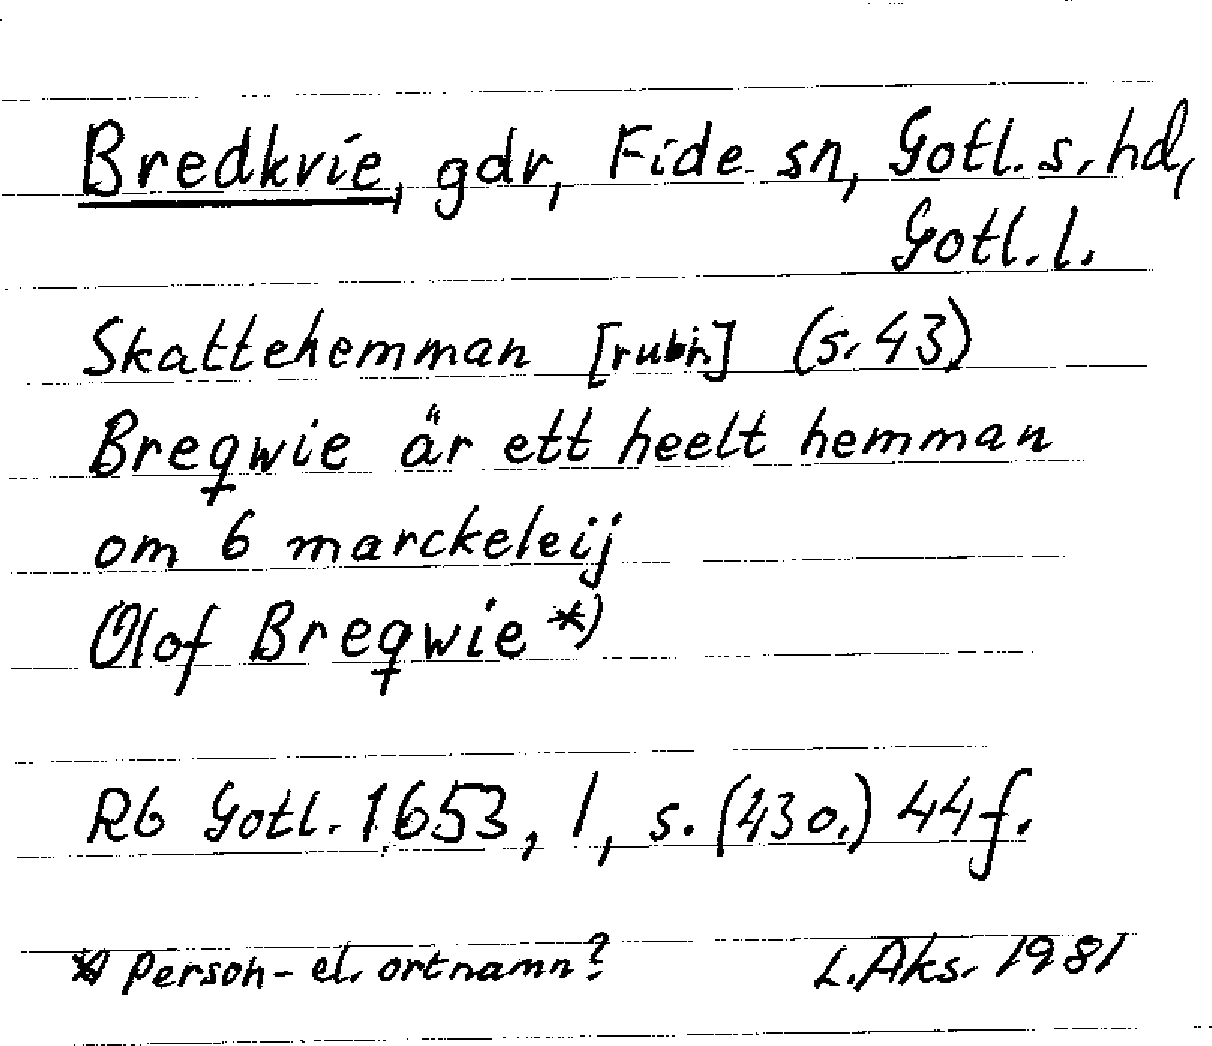 Bredkvie, gdr, Fide sn, Gotl. s. hd,
Gotl. l.
Skattehemman [rubr] (s. 43)
Breqwie är ett heelt hemman
om 6 marckeleij
Olof Breqwie *)
Rb Gotl. 1653, 1, s. (43 o.) 44 f.
*) Person- el. ortnamn?
L. Aks. 1981